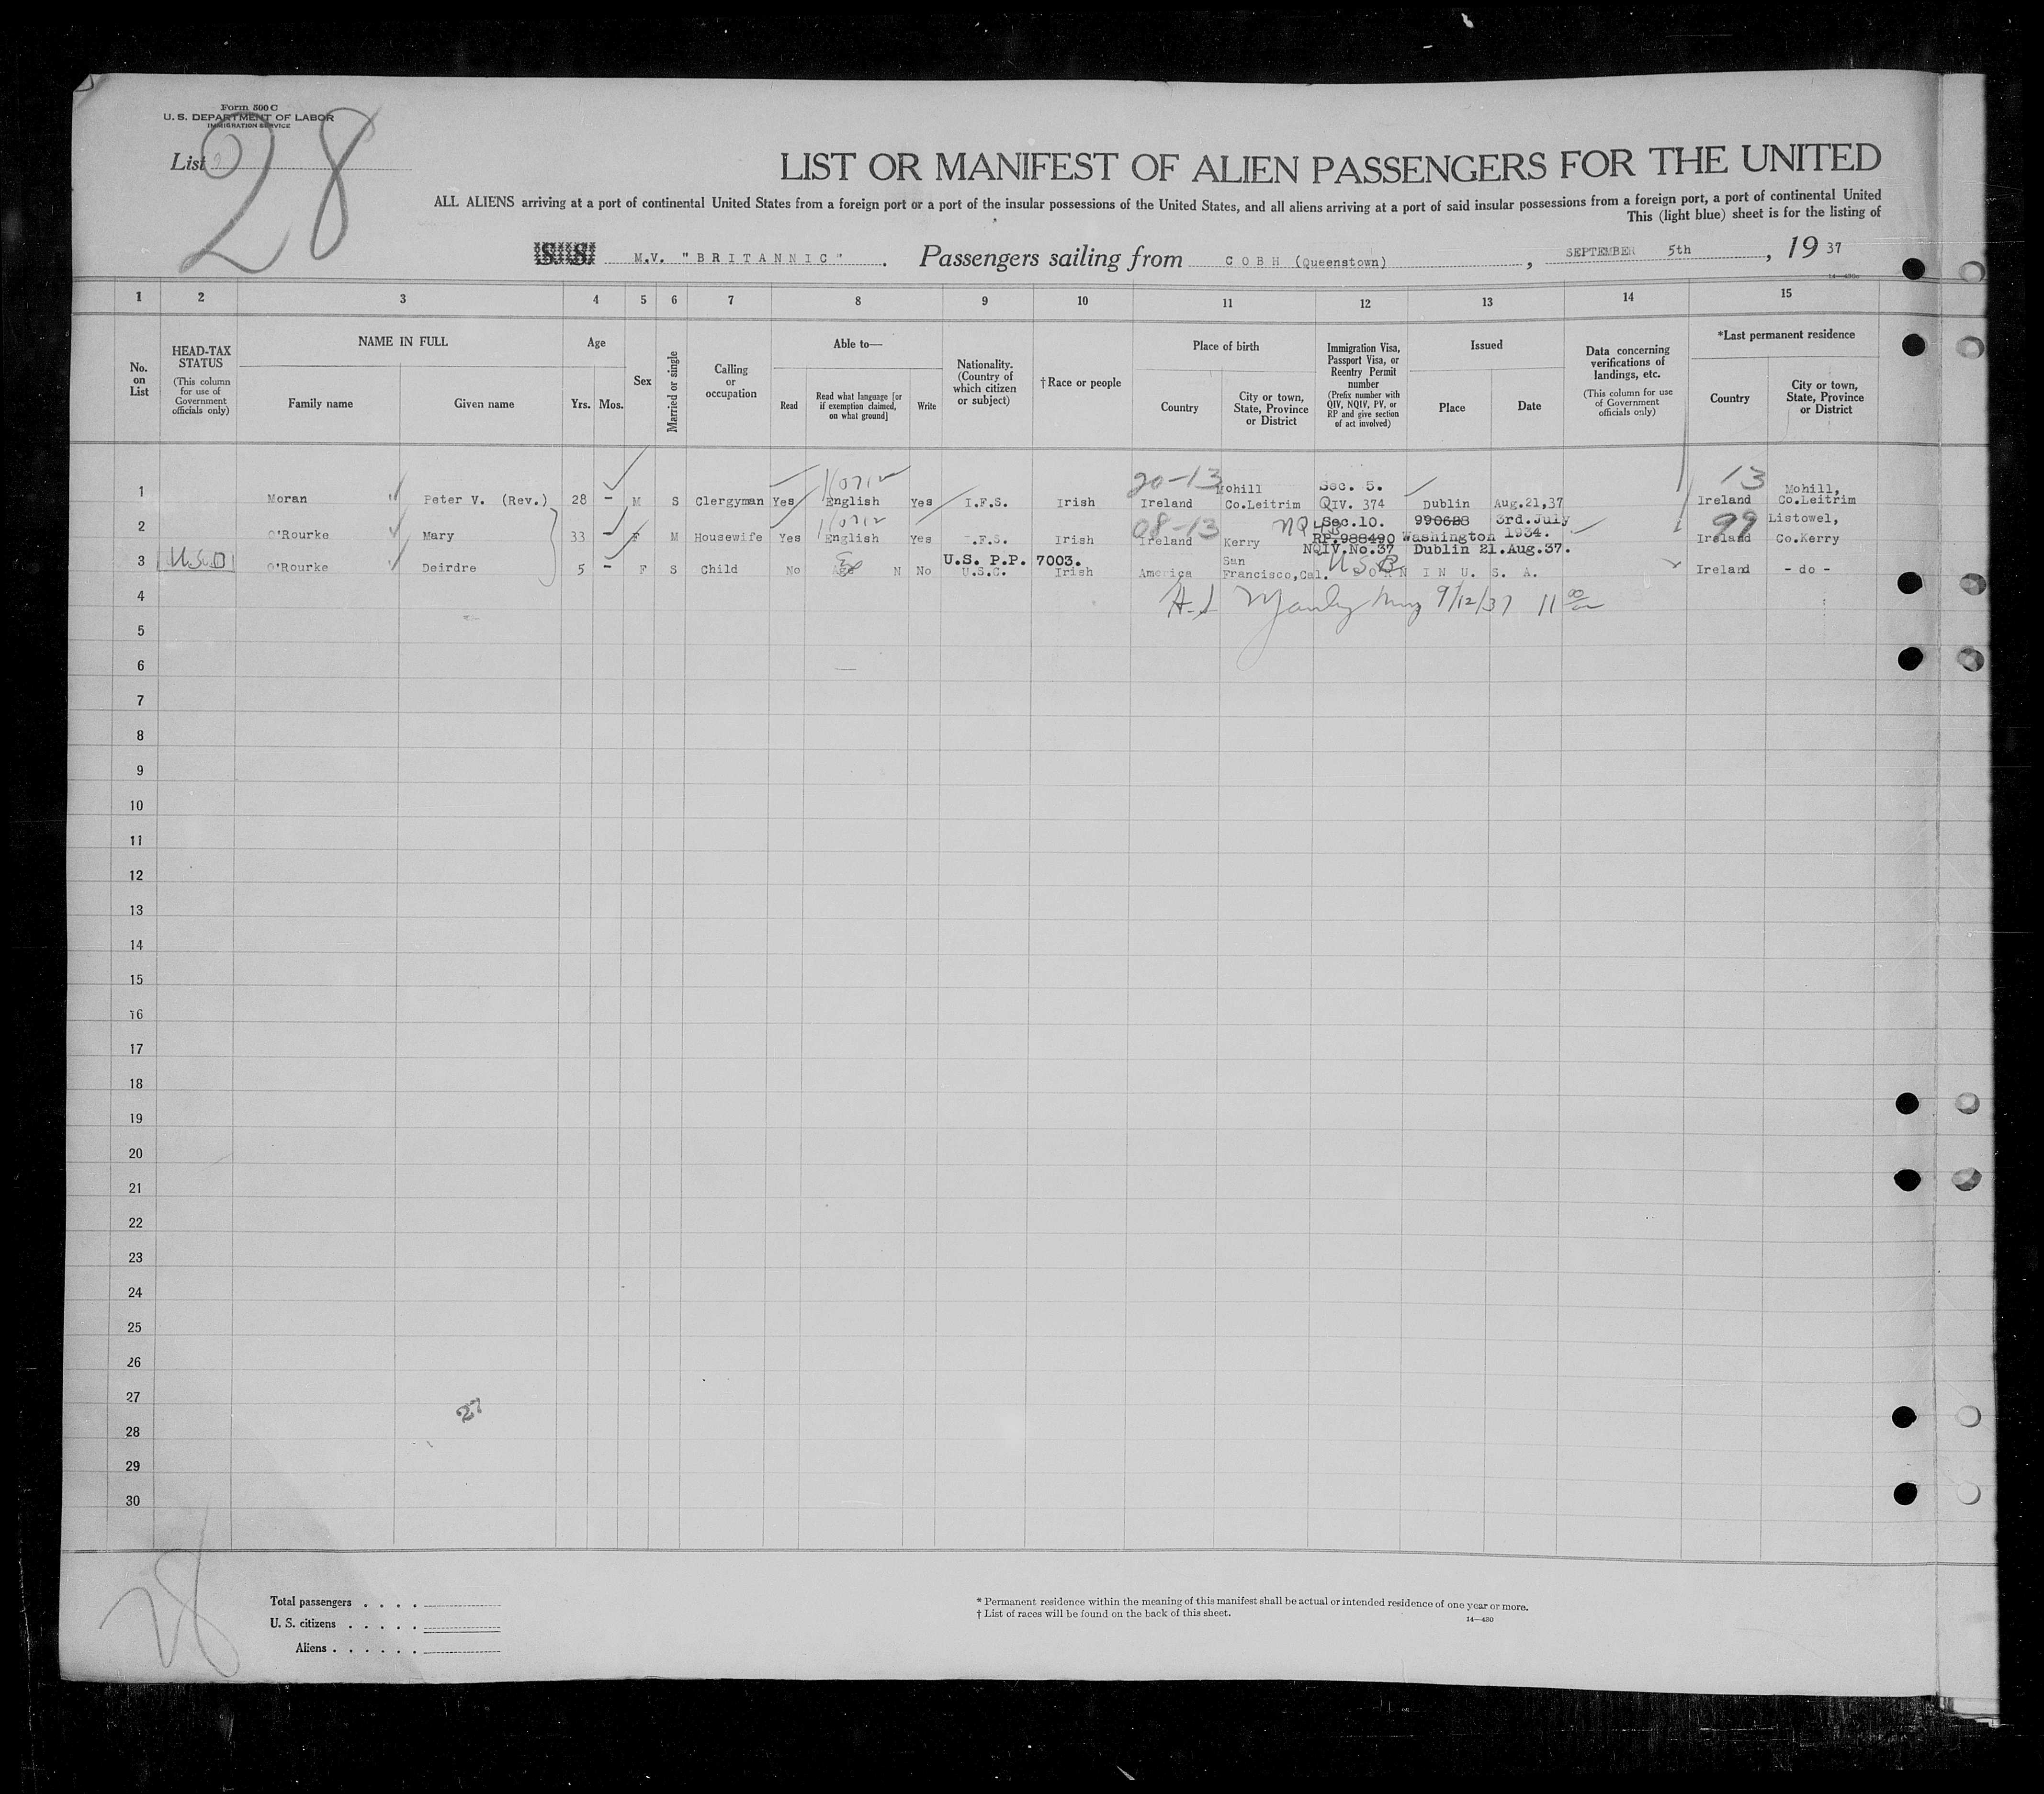 Form 500 C
U. S. DEPARTMENT OF LABOR
IMMIGRATION SERVICE
List
28
LIST OR MANIFEST OF ALIEN PASSENGERS FOR THE UNITED
ALL ALIENS arriving at a port of continental United States from a foreign port or a port of the insular possessions of the United States, and all aliens arriving at a port of said insular possessions from a foreign port, a port of continental United
This (light blue) sheet is for the listing of
S S M.V. "BRITANNIC" . Passengers sailing from COBH (Queenstown) , SEPTEMBER 5th , 19 37
1 2 3 4 5 6 7 8 9 10 11 12 13 14 15
No. on List
HEAD-TAX STATUS
(This column for use of Government officials only)
NAME IN FULL
Family name Given name
Age
Yrs. Mos.
Sex
Married or single
Calling or occupation
Able to—
Read
Read what language [or if exemption claimed, on what ground]
Write
Nationality. (Country of which citizen or subject)
†Race or people
Place of birth
Country
City or town, State, Province or District
Immigration Visa, Passport Visa, or Reentry Permit number
(Prefix number with QIV, NQIV, PV, or RP and give section of act involved)
Issued
Place Date
Data concerning verifications of landings, etc.
(This column for use of Government officials only)
*Last permanent residence
Country
City or town, State, Province or District
20-13 Mohill Sec. 5. 13 Mohill,
1 Moran Peter V. (Rev.) 28 - M S Clergyman Yes English Yes I.F.S. Irish Ireland Co.Leitrim QIV. 374 Dublin Aug.21,37 Ireland Co.Leitrim
08-13 NQ Sec.10. 990628 3rd.July 99 Listowel,
2 O'Rourke Mary 33 - F M Housewife Yes English Yes I.F.S. Irish Ireland Kerry RP.988490 Washington 1934. Ireland Co.Kerry
NQIV.No.37 Dublin 21.Aug.37.
U.S. P.P. 7003. San USB
3 O'Rourke Deirdre 5 - F S Child No N No U.S.C. Irish America Francisco,Cal. BORN IN U. S. A. Ireland - do -
9/12/37 11 00
4
5
6
7
8
9
10
11
12
13
14
15
16
17
18
19
20
21
22
23
24
25
26
27
27
28
29
30
28
Total passengers . . . .
U. S. citizens . . . . .
Aliens . . . . . .
* Permanent residence within the meaning of this manifest shall be actual or intended residence of one year or more.
† List of races will be found on the back of this sheet.
14—430